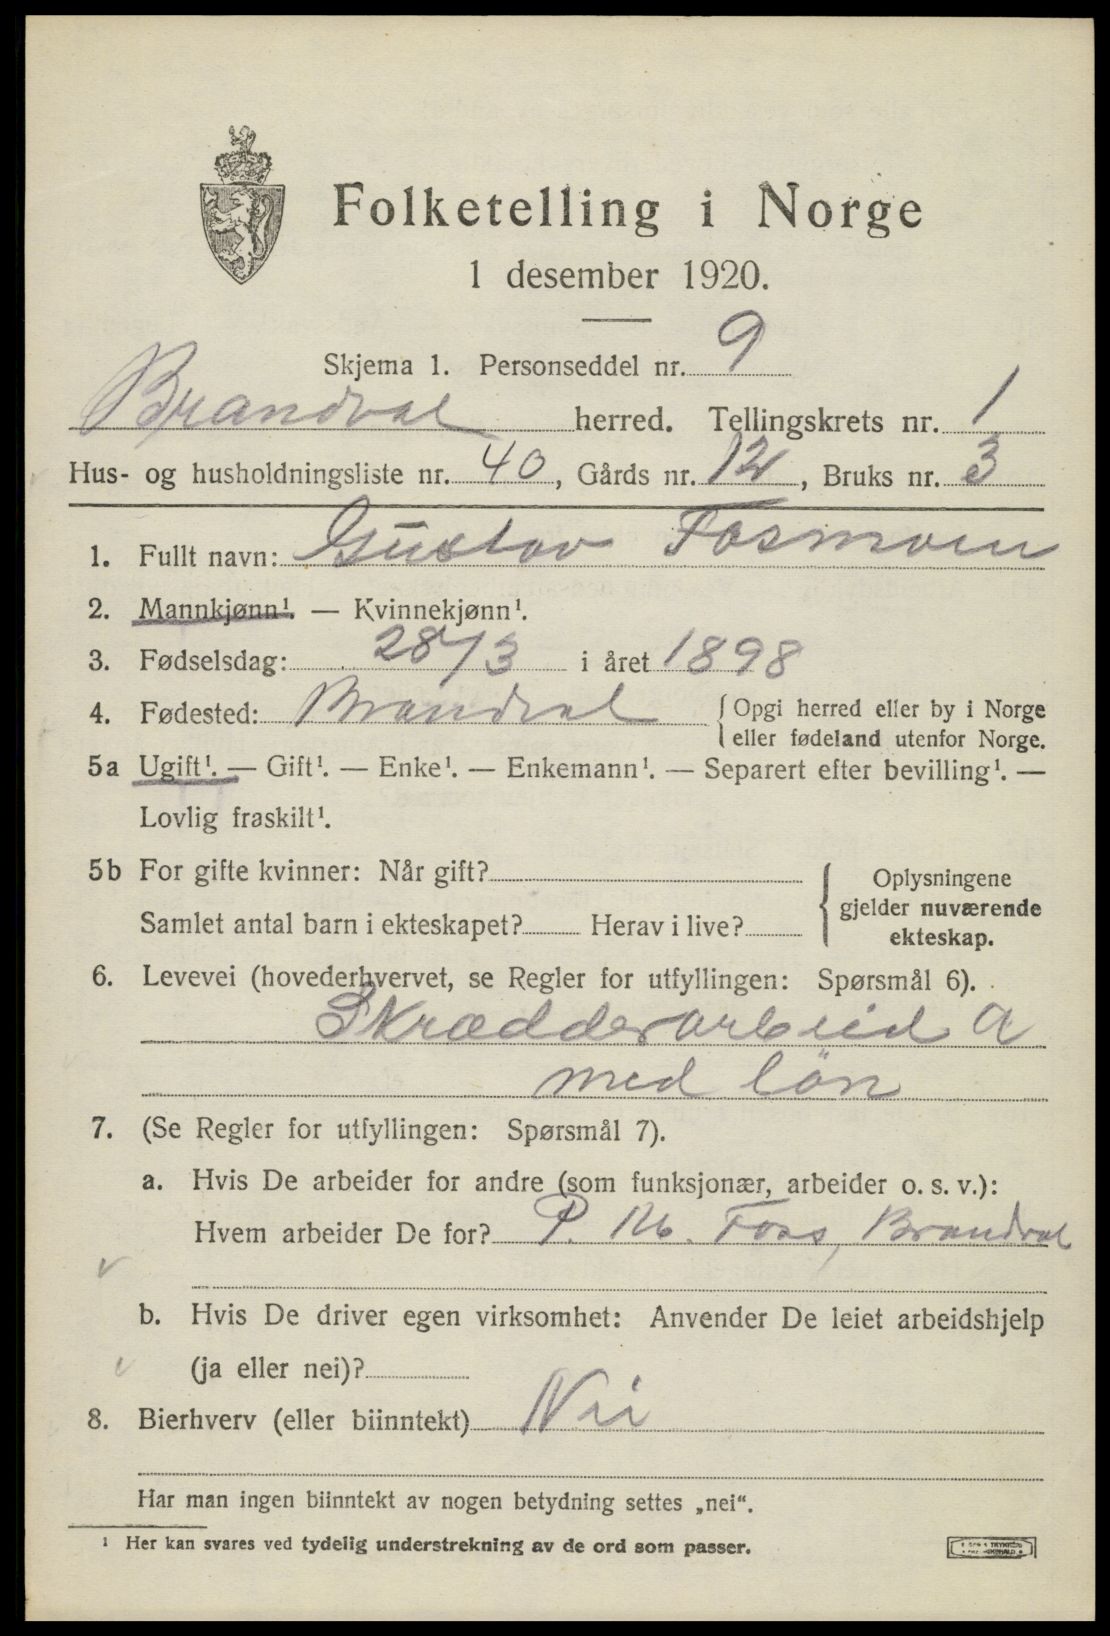 Folketelling i Norge
1 desember 1920.
Skjema 1. Personseddel nr. 9
Brandval herred. Tellingskrets nr. 1
Hus- og husholdningsliste nr. 40, Gårds nr. 12, Bruks nr. 3
1. Fullt navn: Gustav Fosmoen
2. Mannkjønn¹. — Kvinnekjønn¹.
3. Fødselsdag: 28/3 i året 1898
4. Fødested: Brandval { Opgi herred eller by i Norge
eller fødeland utenfor Norge.
5a Ugift¹. — Gift¹. — Enke¹. — Enkemann¹. — Separert efter bevilling¹. —
Lovlig fraskilt¹.
5b For gifte kvinner: Når gift?
Samlet antal barn i ekteskapet? Herav i live?
Oplysningene
gjelder nuværende
ekteskap.
6. Levevei (hovederhvervet, se Regler for utfyllingen: Spørsmål 6).
Skrædderarbeid a
med løn
7. (Se Regler for utfyllingen: Spørsmål 7).
a. Hvis De arbeider for andre (som funksjonær, arbeider o. s. v.):
Hvem arbeider De for? P. M. Foss, Brandval
b. Hvis De driver egen virksomhet: Anvender De leiet arbeidshjelp
(ja eller nei)?
8. Bierhverv (eller biinntekt) Nei
Har man ingen biinntekt av nogen betydning settes „nei“.
¹ Her kan svares ved tydelig understrekning av de ord som passer.